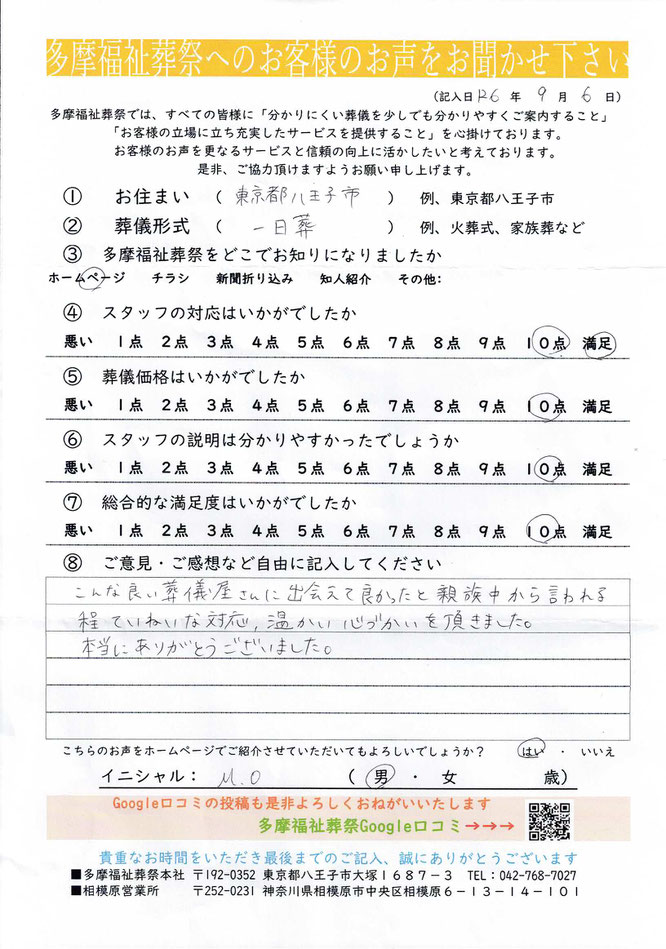 多摩福祉葬祭へのお客様のお声をお聞かせ下さい
(記入日 R6 年 9 月 6 日)
多摩福祉葬祭では、すべての皆様に「分かりにくい葬儀を少しでも分かりやすくご案内すること」
「お客様の立場に立ち充実したサービスを提供すること」を心掛けております。
お客様のお声を更なるサービスと信頼の向上に活かしたいと考えております。
是非、ご協力頂けますようお願い申し上げます。
① お住まい ( 東京都八王子市 ) 例、東京都八王子市
② 葬儀形式 ( 一日葬 ) 例、火葬式、家族葬など
③ 多摩福祉葬祭をどこでお知りになりましたか
ホームページ チラシ 新聞折り込み 知人紹介 その他:
④ スタッフの対応はいかがでしたか
悪い 1点 2点 3点 4点 5点 6点 7点 8点 9点 10点 満足
⑤ 葬儀価格はいかがでしたか
悪い 1点 2点 3点 4点 5点 6点 7点 8点 9点 10点 満足
⑥ スタッフの説明は分かりやすかったでしょうか
悪い 1点 2点 3点 4点 5点 6点 7点 8点 9点 10点 満足
⑦ 総合的な満足度はいかがでしたか
悪い 1点 2点 3点 4点 5点 6点 7点 8点 9点 10点 満足
⑧ ご意見・ご感想など自由に記入してください
こんな良い葬儀屋さんに出会えて良かったと親族中から言われる
程ていねいな対応,温かい心づかいを頂きました。
本当にありがとうございました。
こちらのお声をホームページでご紹介させていただいてもよろしいでしょうか? はい ・ いいえ
イニシャル: M.O ( 男 ・ 女 歳)
Google口コミの投稿も是非よろしくおねがいいたします
多摩福祉葬祭Google口コミ→→→
貴重なお時間をいただき最後までのご記入、誠にありがとうございます
■多摩福祉葬祭本社 〒192-0352 東京都八王子市大塚1687-3 TEL:042-768-7027
■相模原営業所 〒252-0231 神奈川県相模原市中央区相模原6-13-14-101